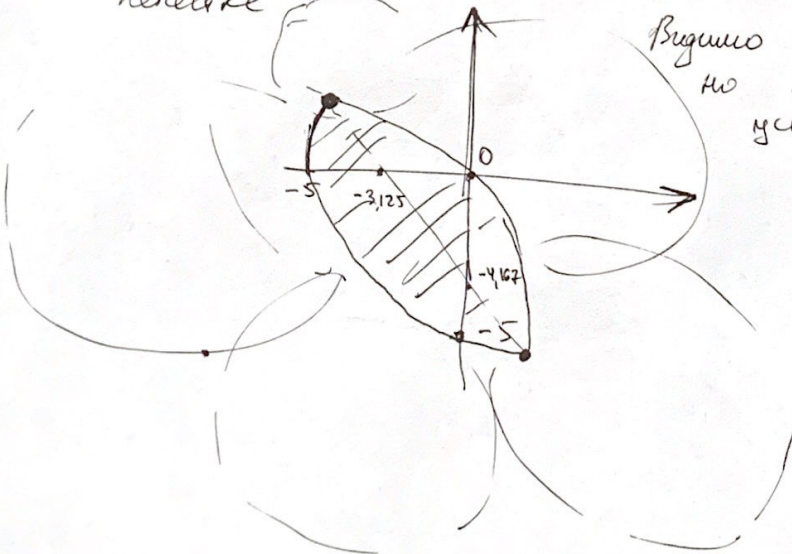 Видимо
но
0
-5
-3,125
-4,167
-5